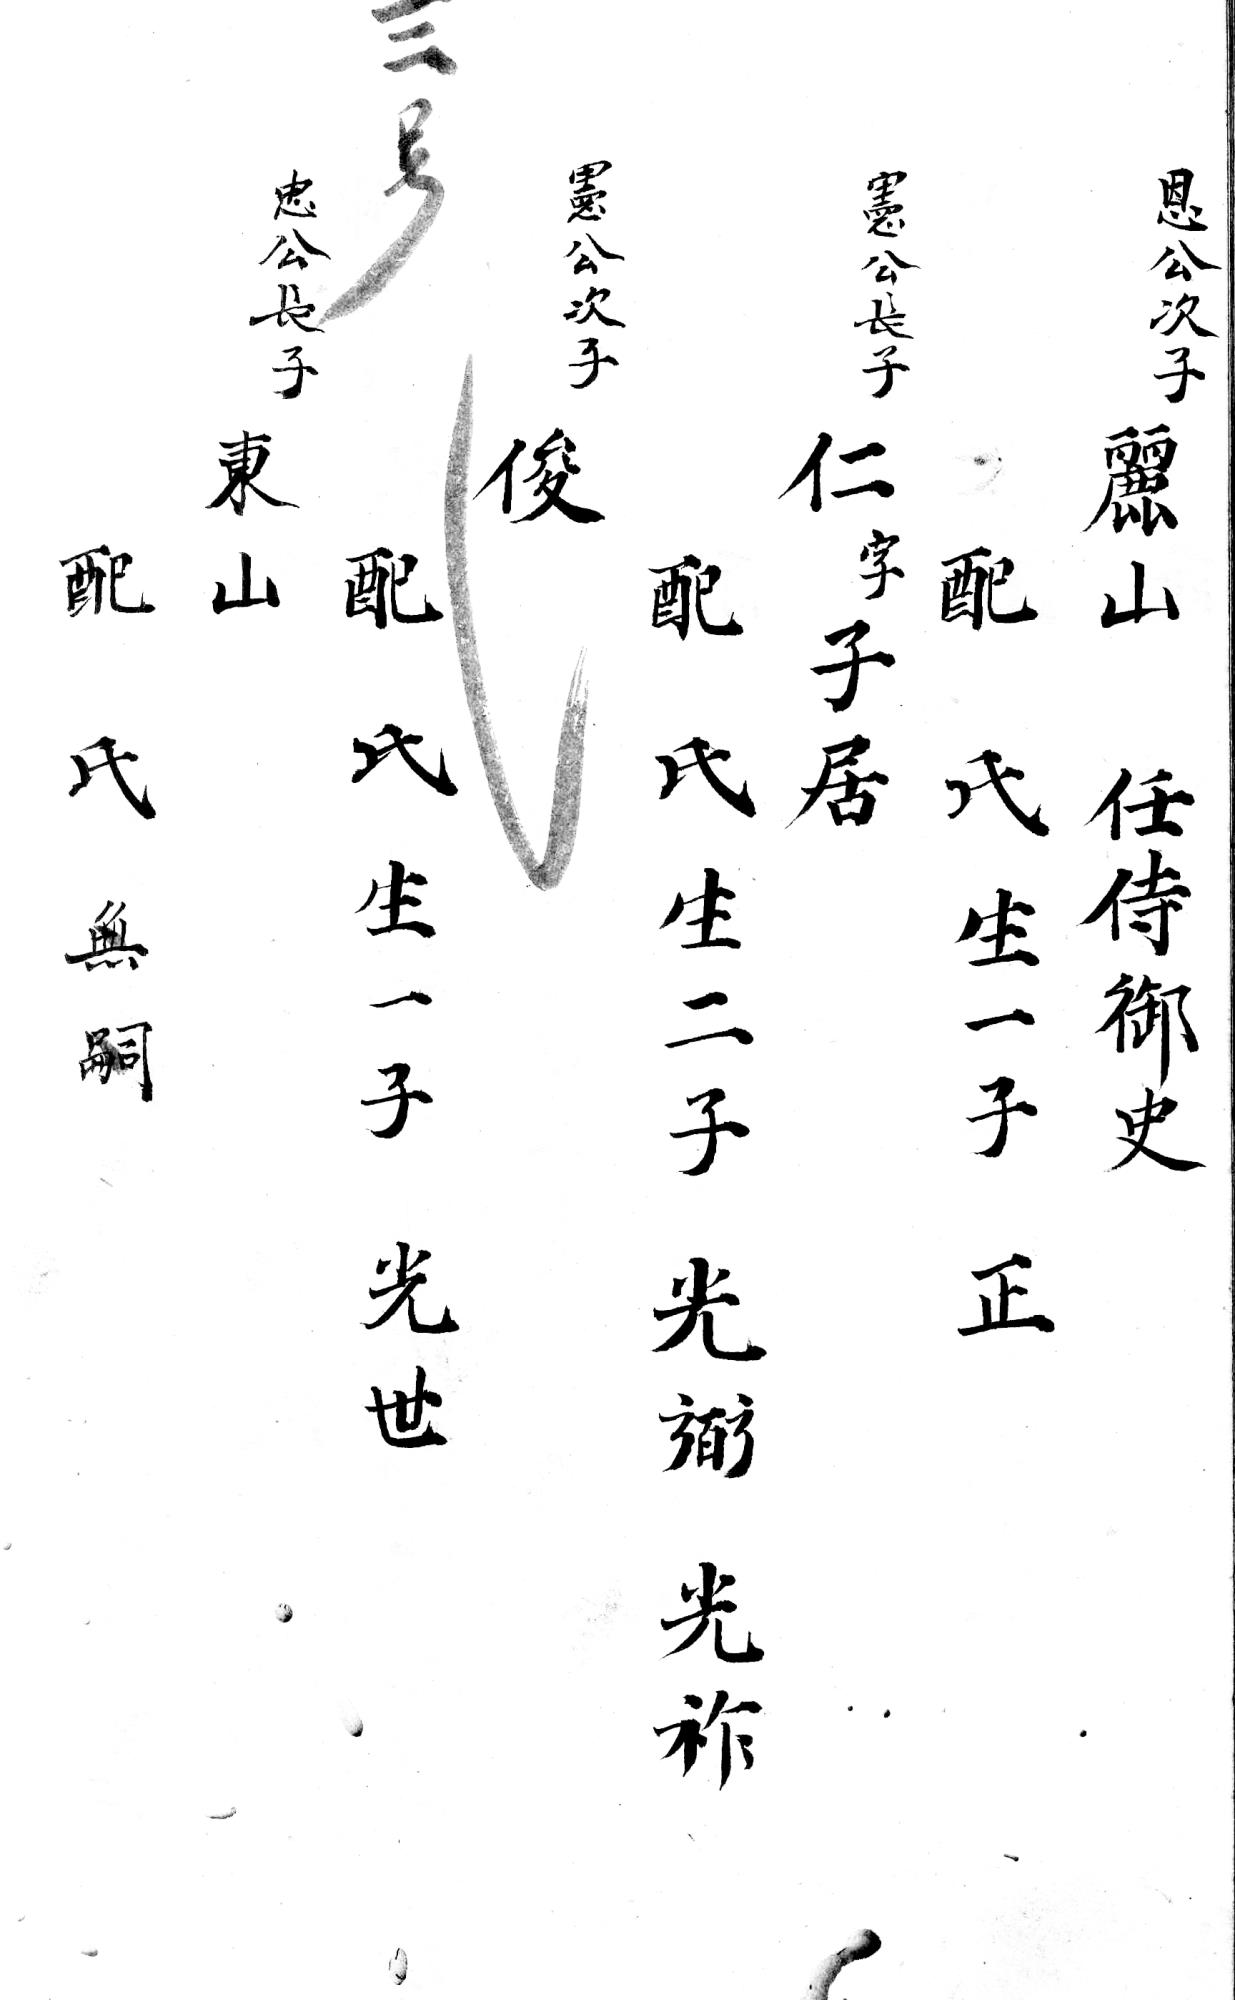 恩公次子 麗山 任侍御史
配 氏生一子 正
憲公長子 仁字子居
配 氏生二子 光弼 光祚
憲公次子 俊
配 氏生一子 光世
忠公長子 東山
配 氏 無嗣
三号